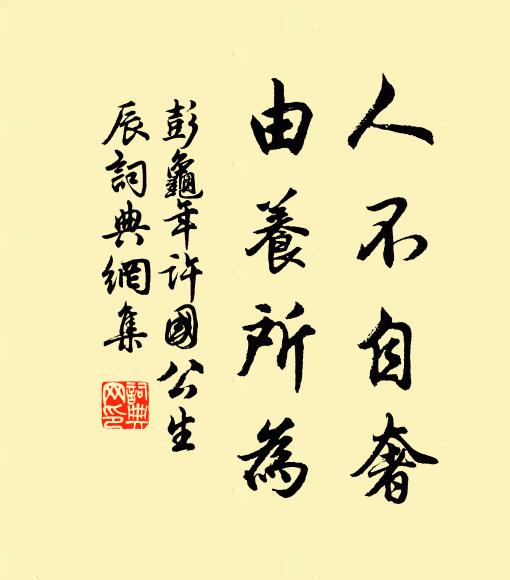 人不自奢
由養所為
彭龜年許國公生
辰詞典網集
詞典
网印